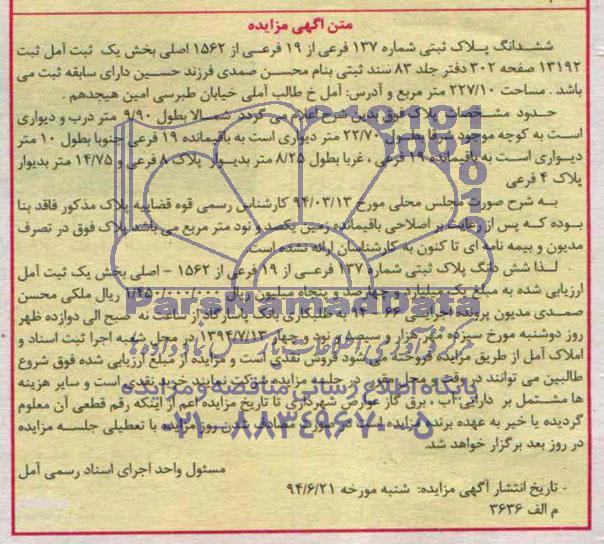 متن آگهی مزایده
ششدانگ پلاک ثبتی شماره ۱۳۷ فرعی از ۱۹ فرعی از ۱۵۶۲ اصلی بخش یک ثبت آمل ثبت
۱۳۱۹۲ صفحه ۳۰۲ دفتر جلد ۸۳ سند ثبتی بنام محسن صمدی فرزند حسین دارای سابقه ثبت می
باشد . مساحت ۲۲۷/۱۰ متر مربع و آدرس: آمل خ طالب آملی خیابان طبرسی امین هیجدهم .
حدود مشخصات پلاک فوق بدین شرح اعلام می گردد شمالا بطول ۹/۹۰ متر درب و دیواری
است به کوچه موجود شرقا بطول ۲۲/۷۰ متر دیواری است به باقیمانده ۱۹ فرعی جنوبا بطول ۱۰ متر
دیواری است به باقیمانده ۱۹ فرعی ، غربا بطول ۸/۲۵ متر بدیوار پلاک ۸ فرعی و ۱۴/۷۵ متر بدیوار
پلاک ۴ فرعی
به شرح صورت مجلس محلی مورخ ۹۴/۰۳/۱۳ کارشناس رسمی قوه قضاییه پلاک مذکور فاقد بنا
بوده که پس از رعایت بر اصلاحی باقیمانده زمین یکصد و نود متر مربع می باشد پلاک فوق در تصرف
مدیون و بیمه نامه ای تا کنون به کارشناسان ارائه نشده است.
لذا شش دانگ پلاک ثبتی شماره ۱۳۷ فرعی از ۱۹ فرعی از ۱۵۶۲ - اصلی بخش یک ثبت آمل
ارزیابی شده به مبلغ یک میلیارد و چهارصد و پنجاه میلیون ریال ۱/۴۵۰/۰۰۰/۰۰۰ ریال ملکی محسن
صمدی مدیون پرونده اجرایی ۶۶ - ۹۴ به طلبکاری بانک پاسارگاد از ساعت نه صبح الی دوازده ظهر
روز دوشنبه مورخ سیزده مهر هزار و سیصد و نود و چهار ۱۳۹۴/۷/۱۳ در محل شعبه اجرا ثبت اسناد و
املاک آمل از طریق مزایده فروخته می شود فروش نقدی است و مزایده از مبلغ ارزیابی شده فوق شروع
طالبین می توانند در وقت و محل مقرر در جلسه مزایده شرکت نمایند خرید نقدی است و سایر هزینه
ها مشتمل بر دارایی آب ، برق گاز عوارض شهرداری تا تاریخ مزایده اعم از اینکه رقم قطعی آن معلوم
گردیده یا خیر به عهده برنده مزایده است در صورت مصادف شدن روز مزایده با تعطیلی جلسه مزایده
در روز بعد برگزار خواهد شد.
مسئول واحد اجرای اسناد رسمی آمل
- تاریخ انتشار آگهی مزایده: شنبه مورخه ۹۴/۶/۲۱
م الف ۳۶۳۶
ParsNamadData
پایگاه اطلاع رسانی مناقصه و مزایده
۰۲۱-۸۸۳۴۹۶۷۰-۵